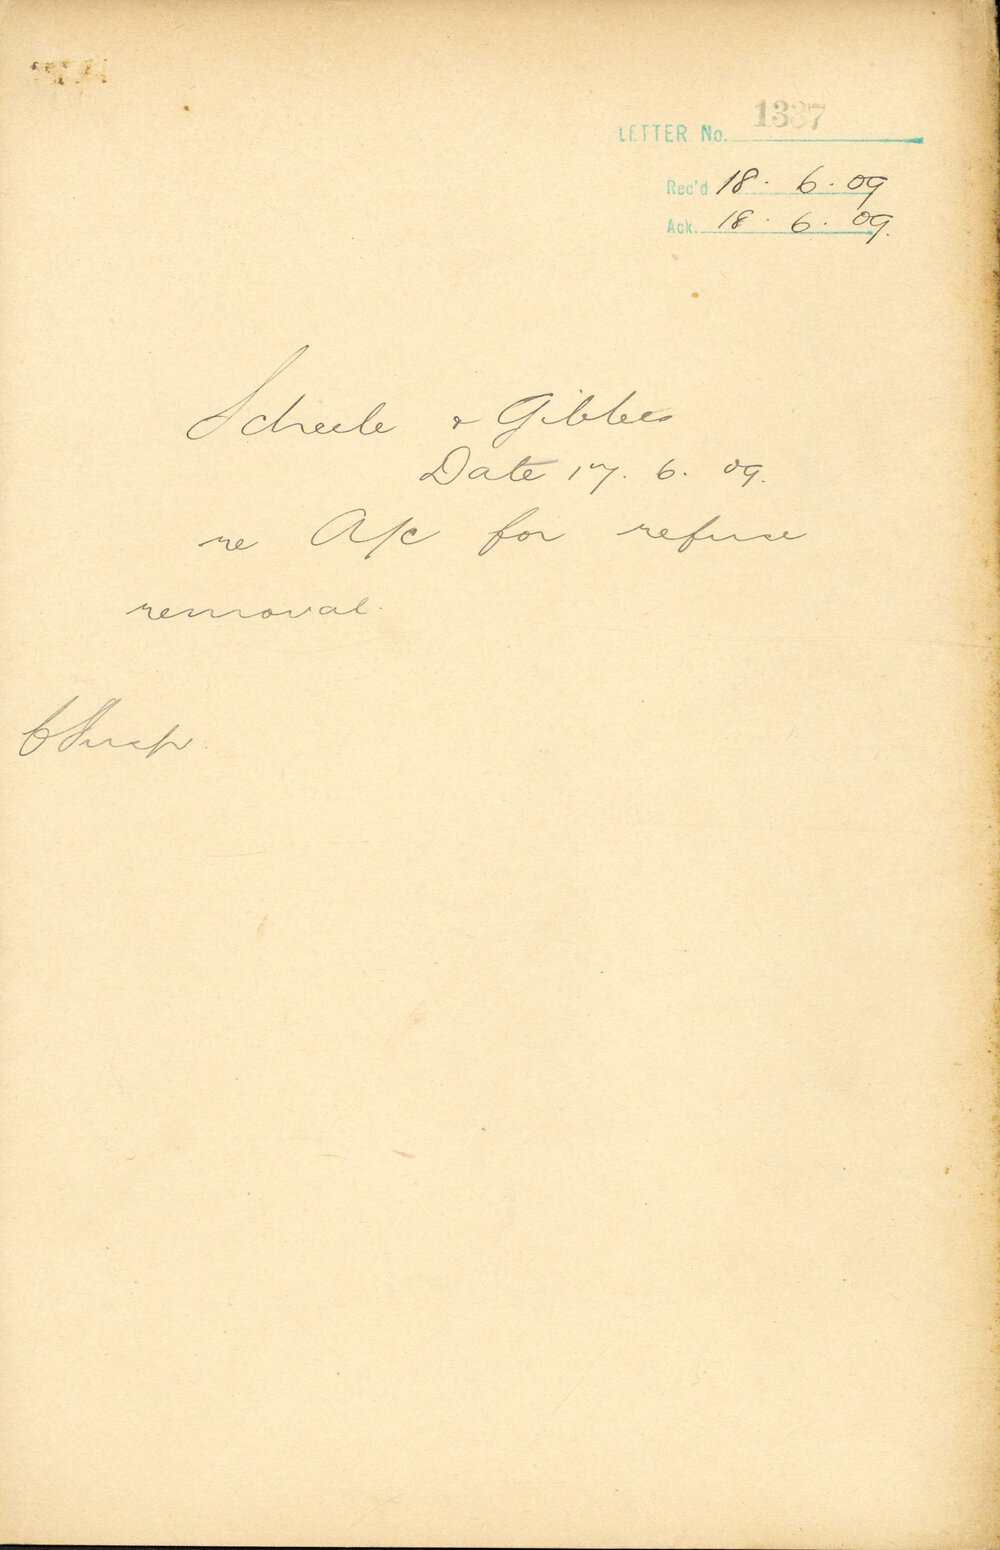 LETTER No. 1337
Rec'd 18. 6. 09
Ack. 18. 6. 09.
Scheele & Gibbes
Date 17. 6. 09.
re A/c for refuse
removal.